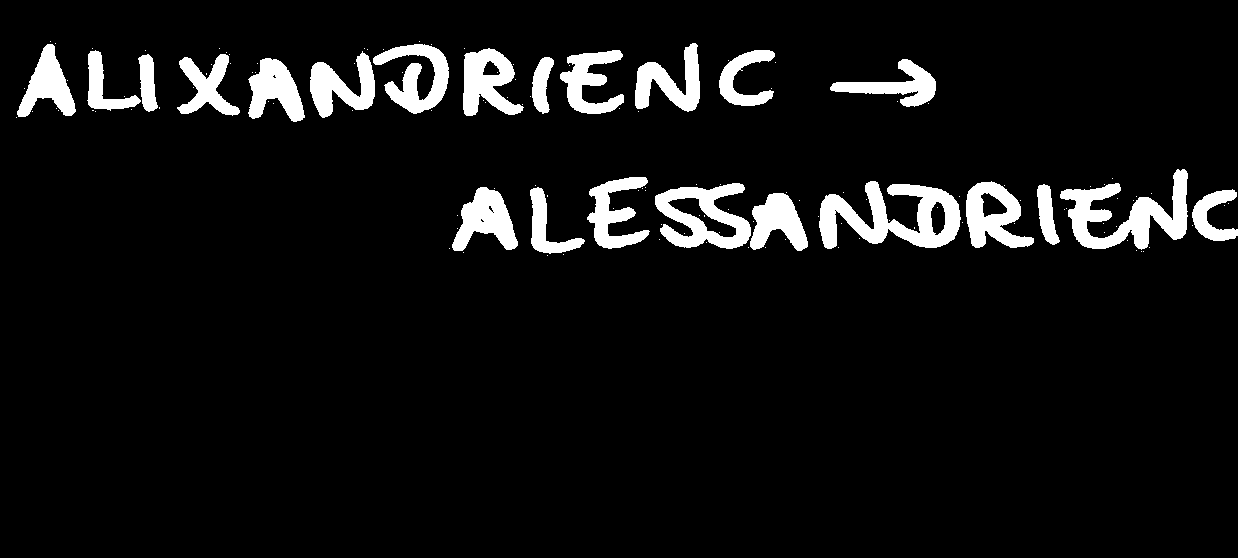 ALIXANDRIENC →
ALESSANDRIENC